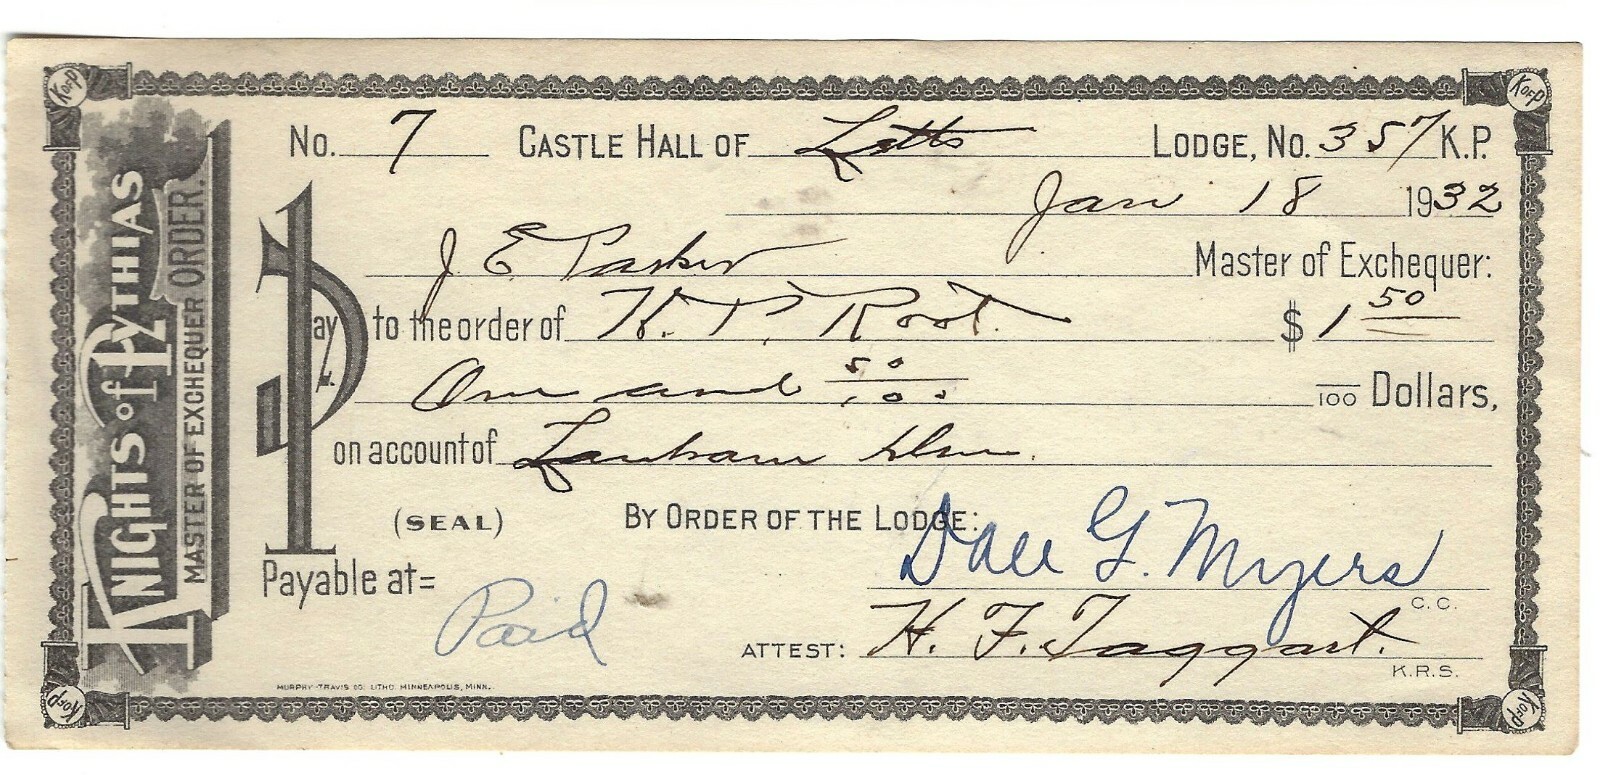 KofP
KofP
KNIGHTS of PYTHIAS
MASTER OF EXCHEQUER ORDER.
No. 7 CASTLE HALL OF Letts LODGE, No. 357 K.P.
Jan 18 1932
J E Parker Master of Exchequer:
Pay to the order of W. P. Root. $ 1 50
One and 50/100 /100 Dollars,
on account of Lanham
(SEAL) BY ORDER OF THE LODGE:
Dale G. Myers
C. C.
Payable at=
Paid
ATTEST: H. F. Taggart.
K.R.S.
MURPHY-TRAVIS CO. LITHO. MINNEAPOLIS, MINN.
KofP
KofP